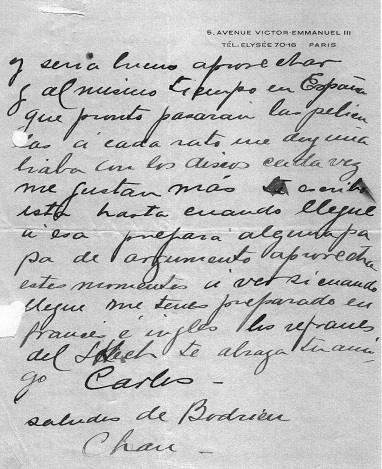 5, AVENUE VICTOR-EMMANUEL III
TEL: ELYSÉE 70-16 PARIS
y seria bueno aprovechar
y al mismo tiempo en España
que pronto pasaran las pelicu
las á cada rato me doy una
biaba con los discos cada vez
me gustan más te escribo
esta hasta cuando llegue
á esa prepara alguna pa
pa de argumento aprovecha
estos momentos á ver si cuando
llegue me tenes preparado en
frances é ingles los refranes
del Skech te abraza tu ami
go Carlos -
saludos de
Chau -